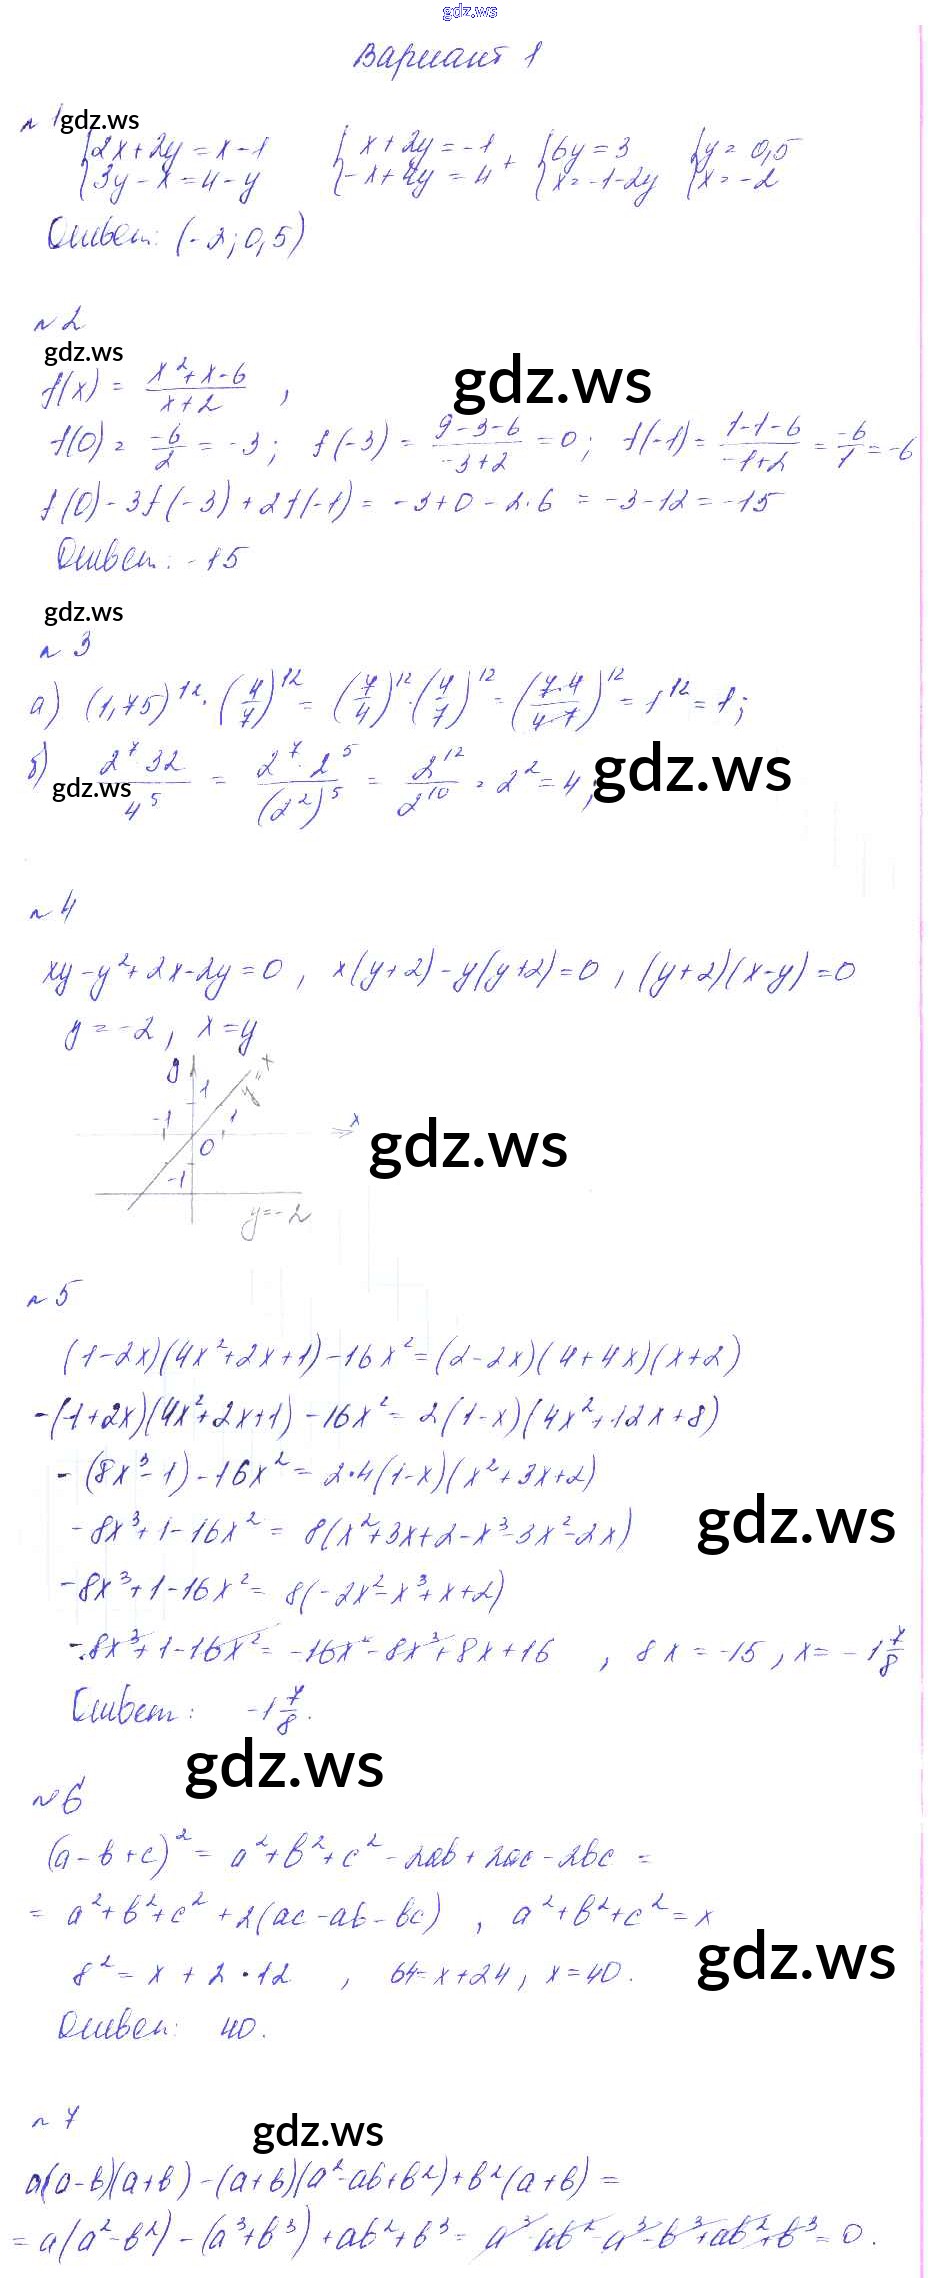 gdz.ws
Вариант 1
№1 gdz.ws
{2x+2y=x-1 {x+2y=-1 + {6y=3 {y=0,5
{3y-x=4-y {-x+4y=4 {x=-1-2y {x=-2
Ответ: (-2; 0,5)
№2
gdz.ws
gdz.ws
f(x) = (x²+x-6)/(x+2) ,
f(0) = -6/2 = -3; f(-3) = (9-3-6)/(-3+2) = 0; f(-1) = (1-1-6)/(-1+2) = -6/1 = -6
f(0)-3f(-3)+2f(-1) = -3+0-2·6 = -3-12 = -15
Ответ: -15
gdz.ws
№3
а) (1,75)¹²·(4/7)¹² = (7/4)¹²·(4/7)¹² = (7·4/4·7)¹² = 1¹² = 1;
б) 2⁷ 32/4⁵ = 2⁷·2⁵/(2²)⁵ = 2¹²/2¹⁰ = 2² = 4;
gdz.ws
gdz.ws
№4
xy-y²+2x-2y=0, x(y+2)-y(y+2)=0, (y+2)(x-y)=0
y=-2, x=y
y
1
y=x
-1 1 x
0
-1
y=-2
gdz.ws
№5
(1-2x)(4x²+2x+1)-16x²=(2-2x)(4+4x)(x+2)
-(-1+2x)(4x²+2x+1)-16x²=2(1-x)(4x²+12x+8)
-(8x³-1)-16x²=2·4(1-x)(x²+3x+2)
-8x³+1-16x²=8(x²+3x+2-x³-3x²-2x)
gdz.ws
-8x³+1-16x²=8(-2x²-x³+x+2)
-8x³+1-16x²=-16x²-8x³+8x+16, 8x=-15, x=-1 7/8
Ответ: -1 7/8.
gdz.ws
№6
(a-b+c)²=a²+b²+c²-2ab+2ac-2bc=
=a²+b²+c²+2(ac-ab-bc), a²+b²+c²=x
gdz.ws
8²=x+2·12, 64=x+24, x=40.
Ответ: 40.
№7
gdz.ws
a(a-b)(a+b)-(a+b)(a²-ab+b²)+b²(a+b)=
=a(a²-b²)-(a³+b³)+ab²+b³=a³-ab²-a³-b³+ab²+b³=0.